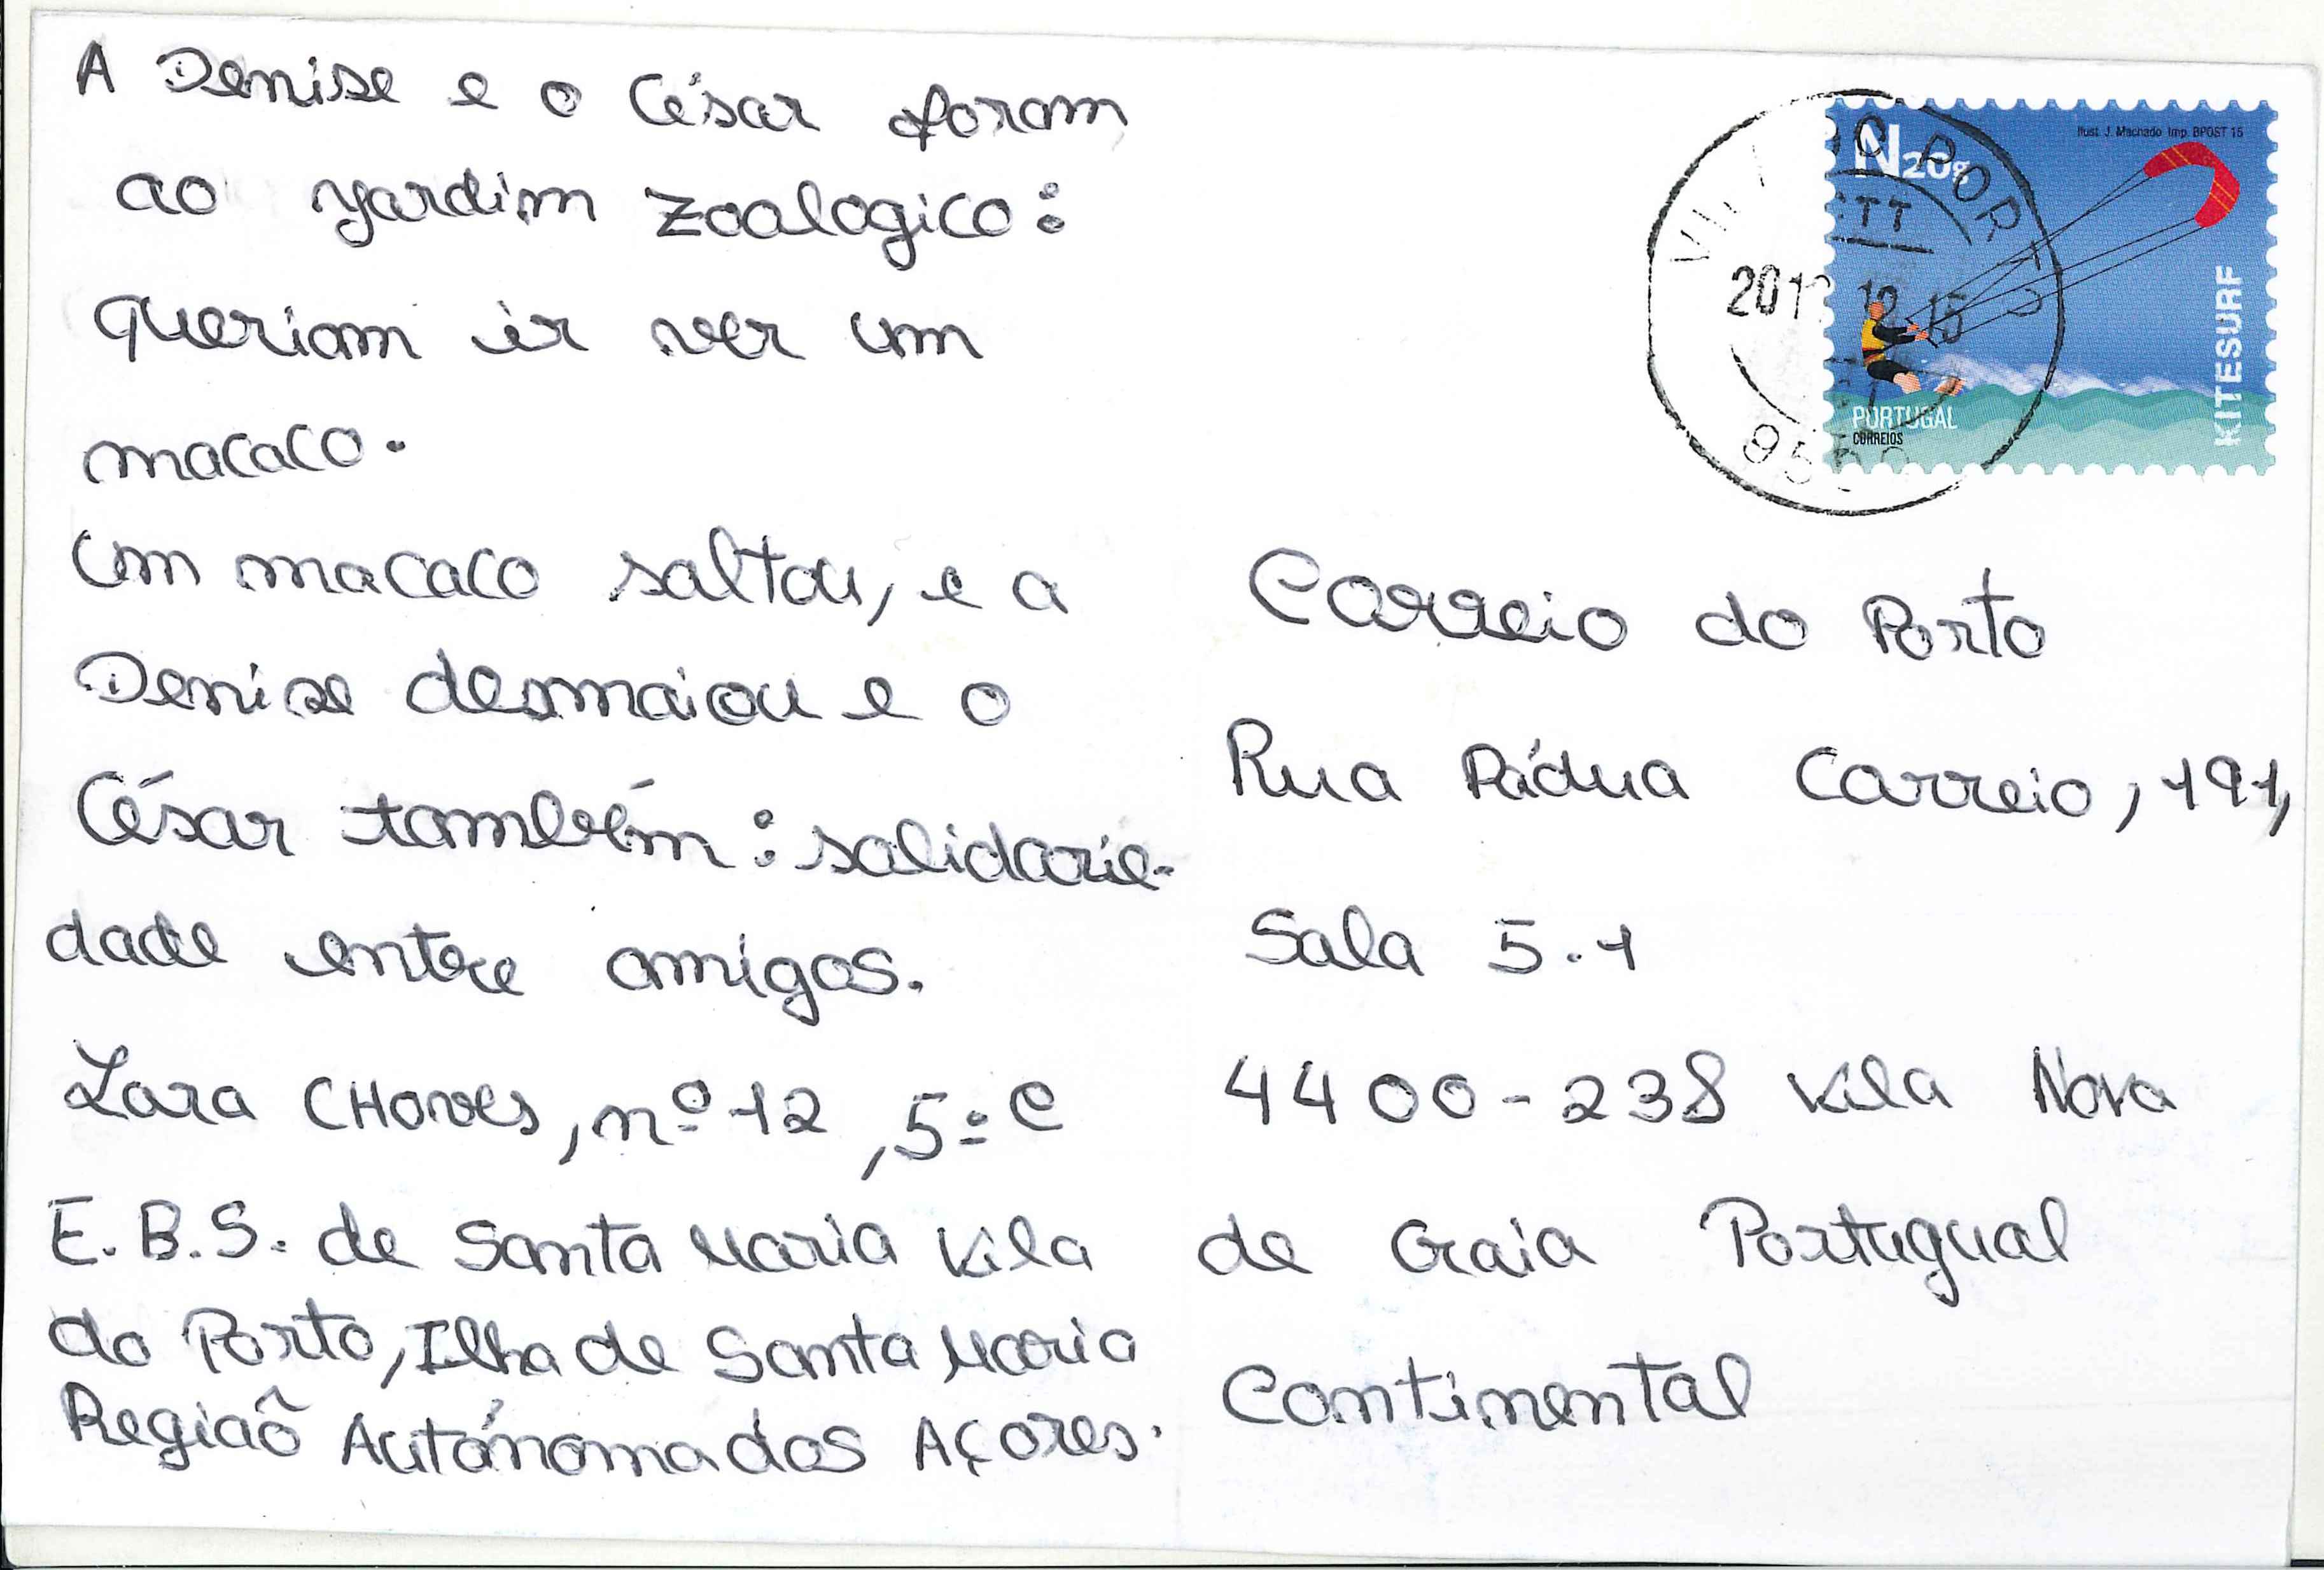 A Denise e o César foram
ao yardim zoalogico:
queriam ir ver um
macaco.
Um macaco saltou, e a
Denise desmaiou e o
César também: salidarie-
dade entre amigos.
Lara CHaves, nº 12, 5º C
E.B.S. de Santa Maria Vila
do Porto, Ilha de Santa Maria
Região Autónoma dos Açores.
Ilust. J. Machado Imp. BPOST 15
N20g
CTT
KITESURF
PORTUGAL
CORREIOS
Correio do Porto
Rua Pádua Correio, 191,
Sala 5.1
4400-238 Vila Nova
de Gaia Portugual
Continental